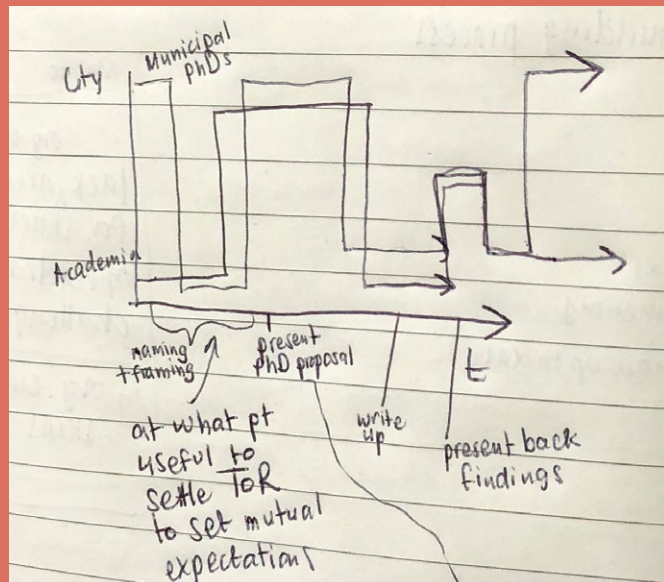 City
Municipal
PhDs
Academia
naming
+framing
present
PhD proposal
t
write
up
present back
findings
at what pt
useful to
settle ToR
to set mutual
expectations